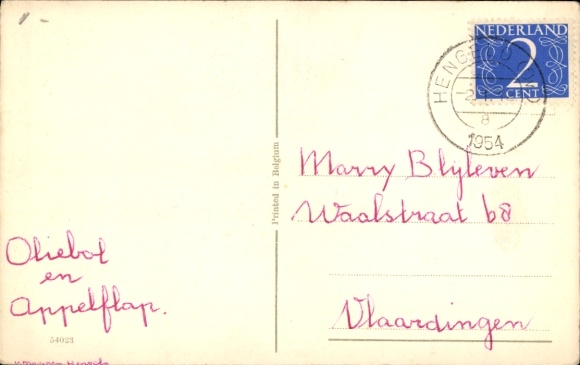 1 -
NEDERLAND
2
CENT
HENGELO
1954
Marry Blijleven
Waalstraat 68
Vlaardingen
Printed in Belgium
Oliebol
en
Appelflap.
54023